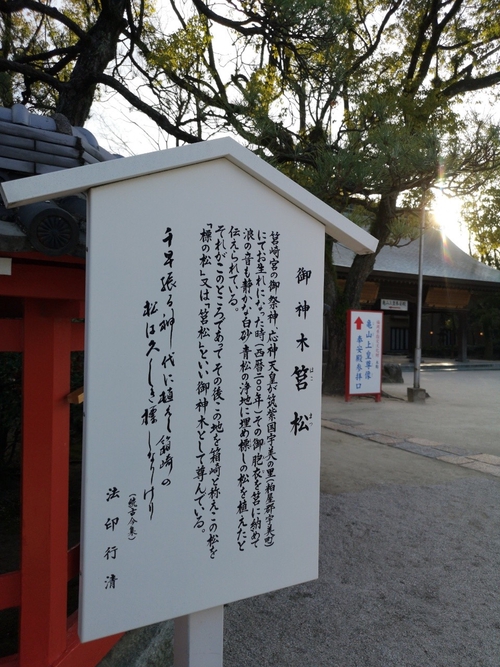 御神木筥松
はこ まつ
筥崎宮の御祭神、応神天皇が筑紫国宇美の里(粕屋郡宇美町)
にてお生れになった時(西暦二〇〇年)その御胞衣を筥に納めて
浪の音も静かな白砂青松の浄地に埋め標しの松を植えたと
伝えられている。
それがこのところであってその後、この地を箱崎と称えこの松を
「標の松」又は「筥松」といい御神木として尊んでいる。
千早振る神代に植えし箱崎の
松は久しき標しなりけり
(続古今集)
法印行清
亀山上皇尊像
奉安殿参拝口